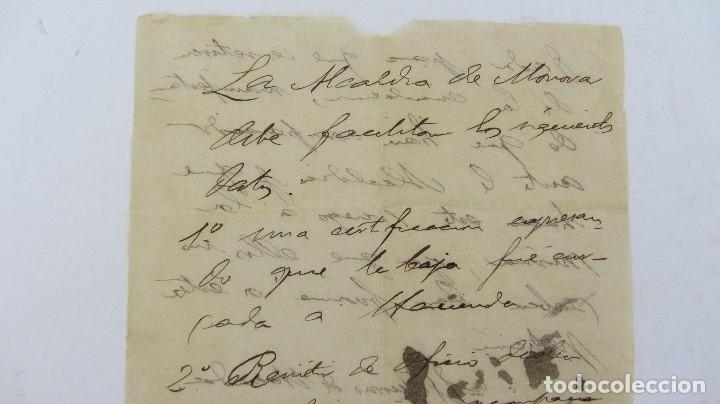 La Alcaldia de Monova
debe facilitar los siguientes
datos.
1º una certificacion expresan-
do que la baja fué cur-
sada a Hacienda
2º Remitir de oficio
todocoleccion
todocoleccion.net